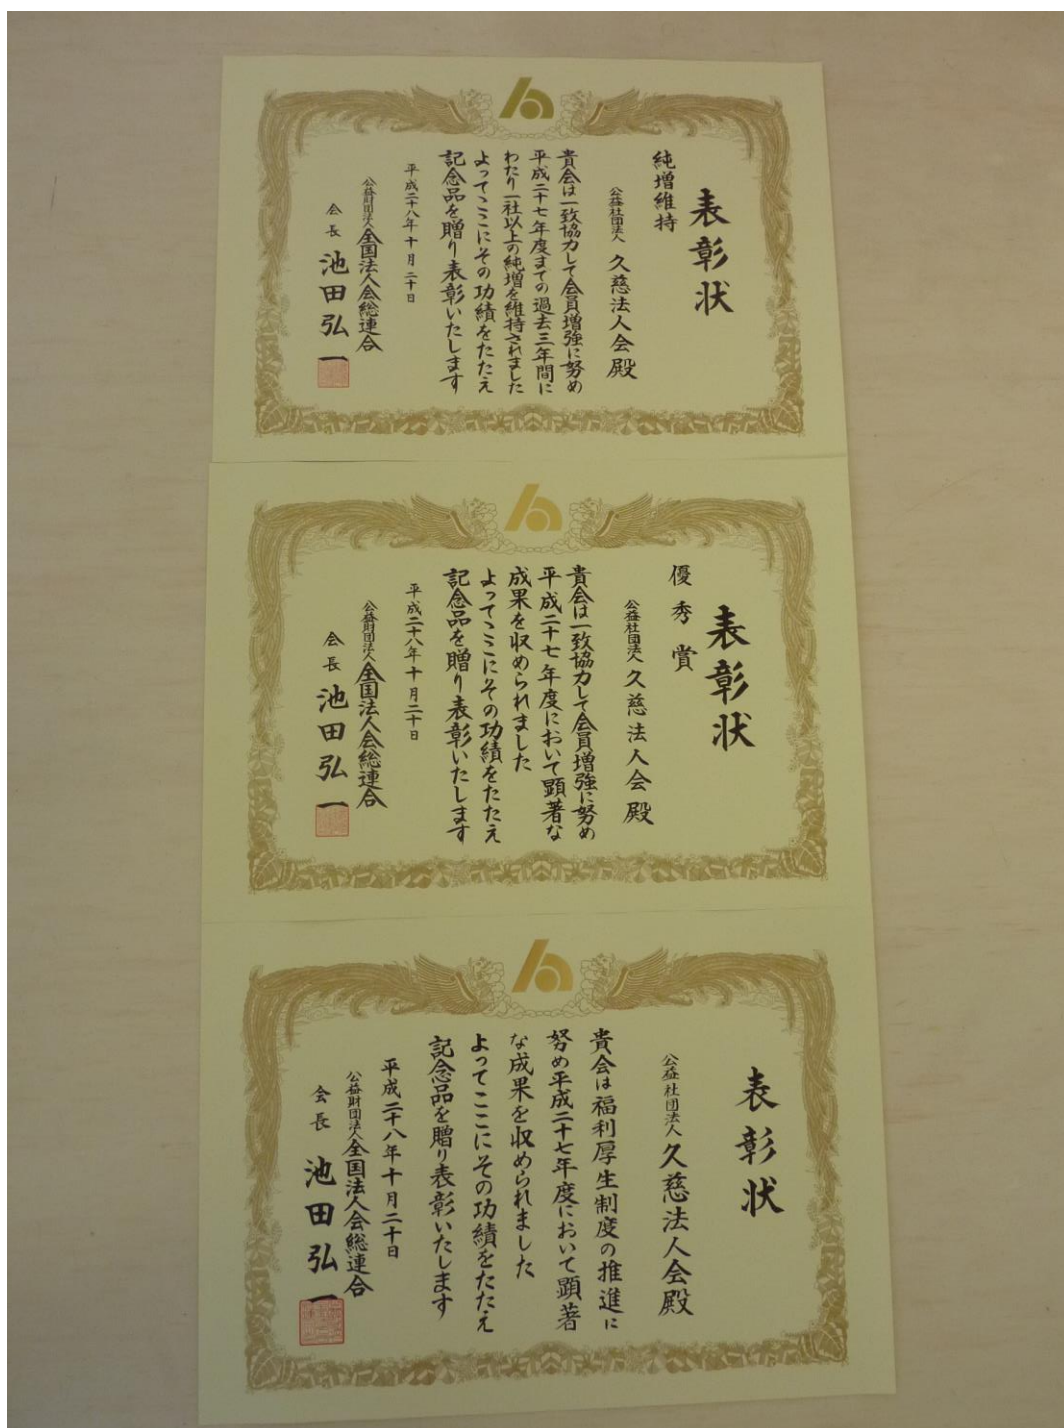 表彰状
純増維持
公益社団法人 久慈法人会殿
貴会は一致協力して会員増強に努め
平成二十七年度までの過去三年間に
わたり一社以上の純増を維持されました
よってここにその功績をたたえ
記念品を贈り表彰いたします
平成二十八年十月二十日
公益財団法人全国法人会総連合
会長 池田弘一
表彰状
優秀賞
公益社団法人 久慈法人会殿
貴会は一致協力して会員増強に努め
平成二十七年度において顕著な
成果を収められました
よってここにその功績をたたえ
記念品を贈り表彰いたします
平成二十八年十月二十日
公益財団法人全国法人会総連合
会長 池田弘一
表彰状
公益社団法人 久慈法人会殿
貴会は福利厚生制度の推進に
努め平成二十七年度において顕著
な成果を収められました
よってここにその功績をたたえ
記念品を贈り表彰いたします
平成二十八年十月二十日
公益財団法人全国法人会総連合
会長 池田弘一